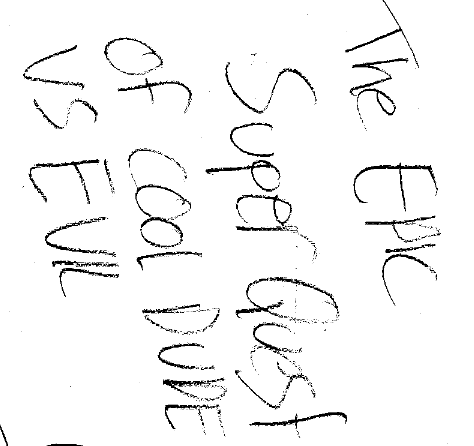 The EPIC
Super Quest
Of COOL DUDE
VS EVIL